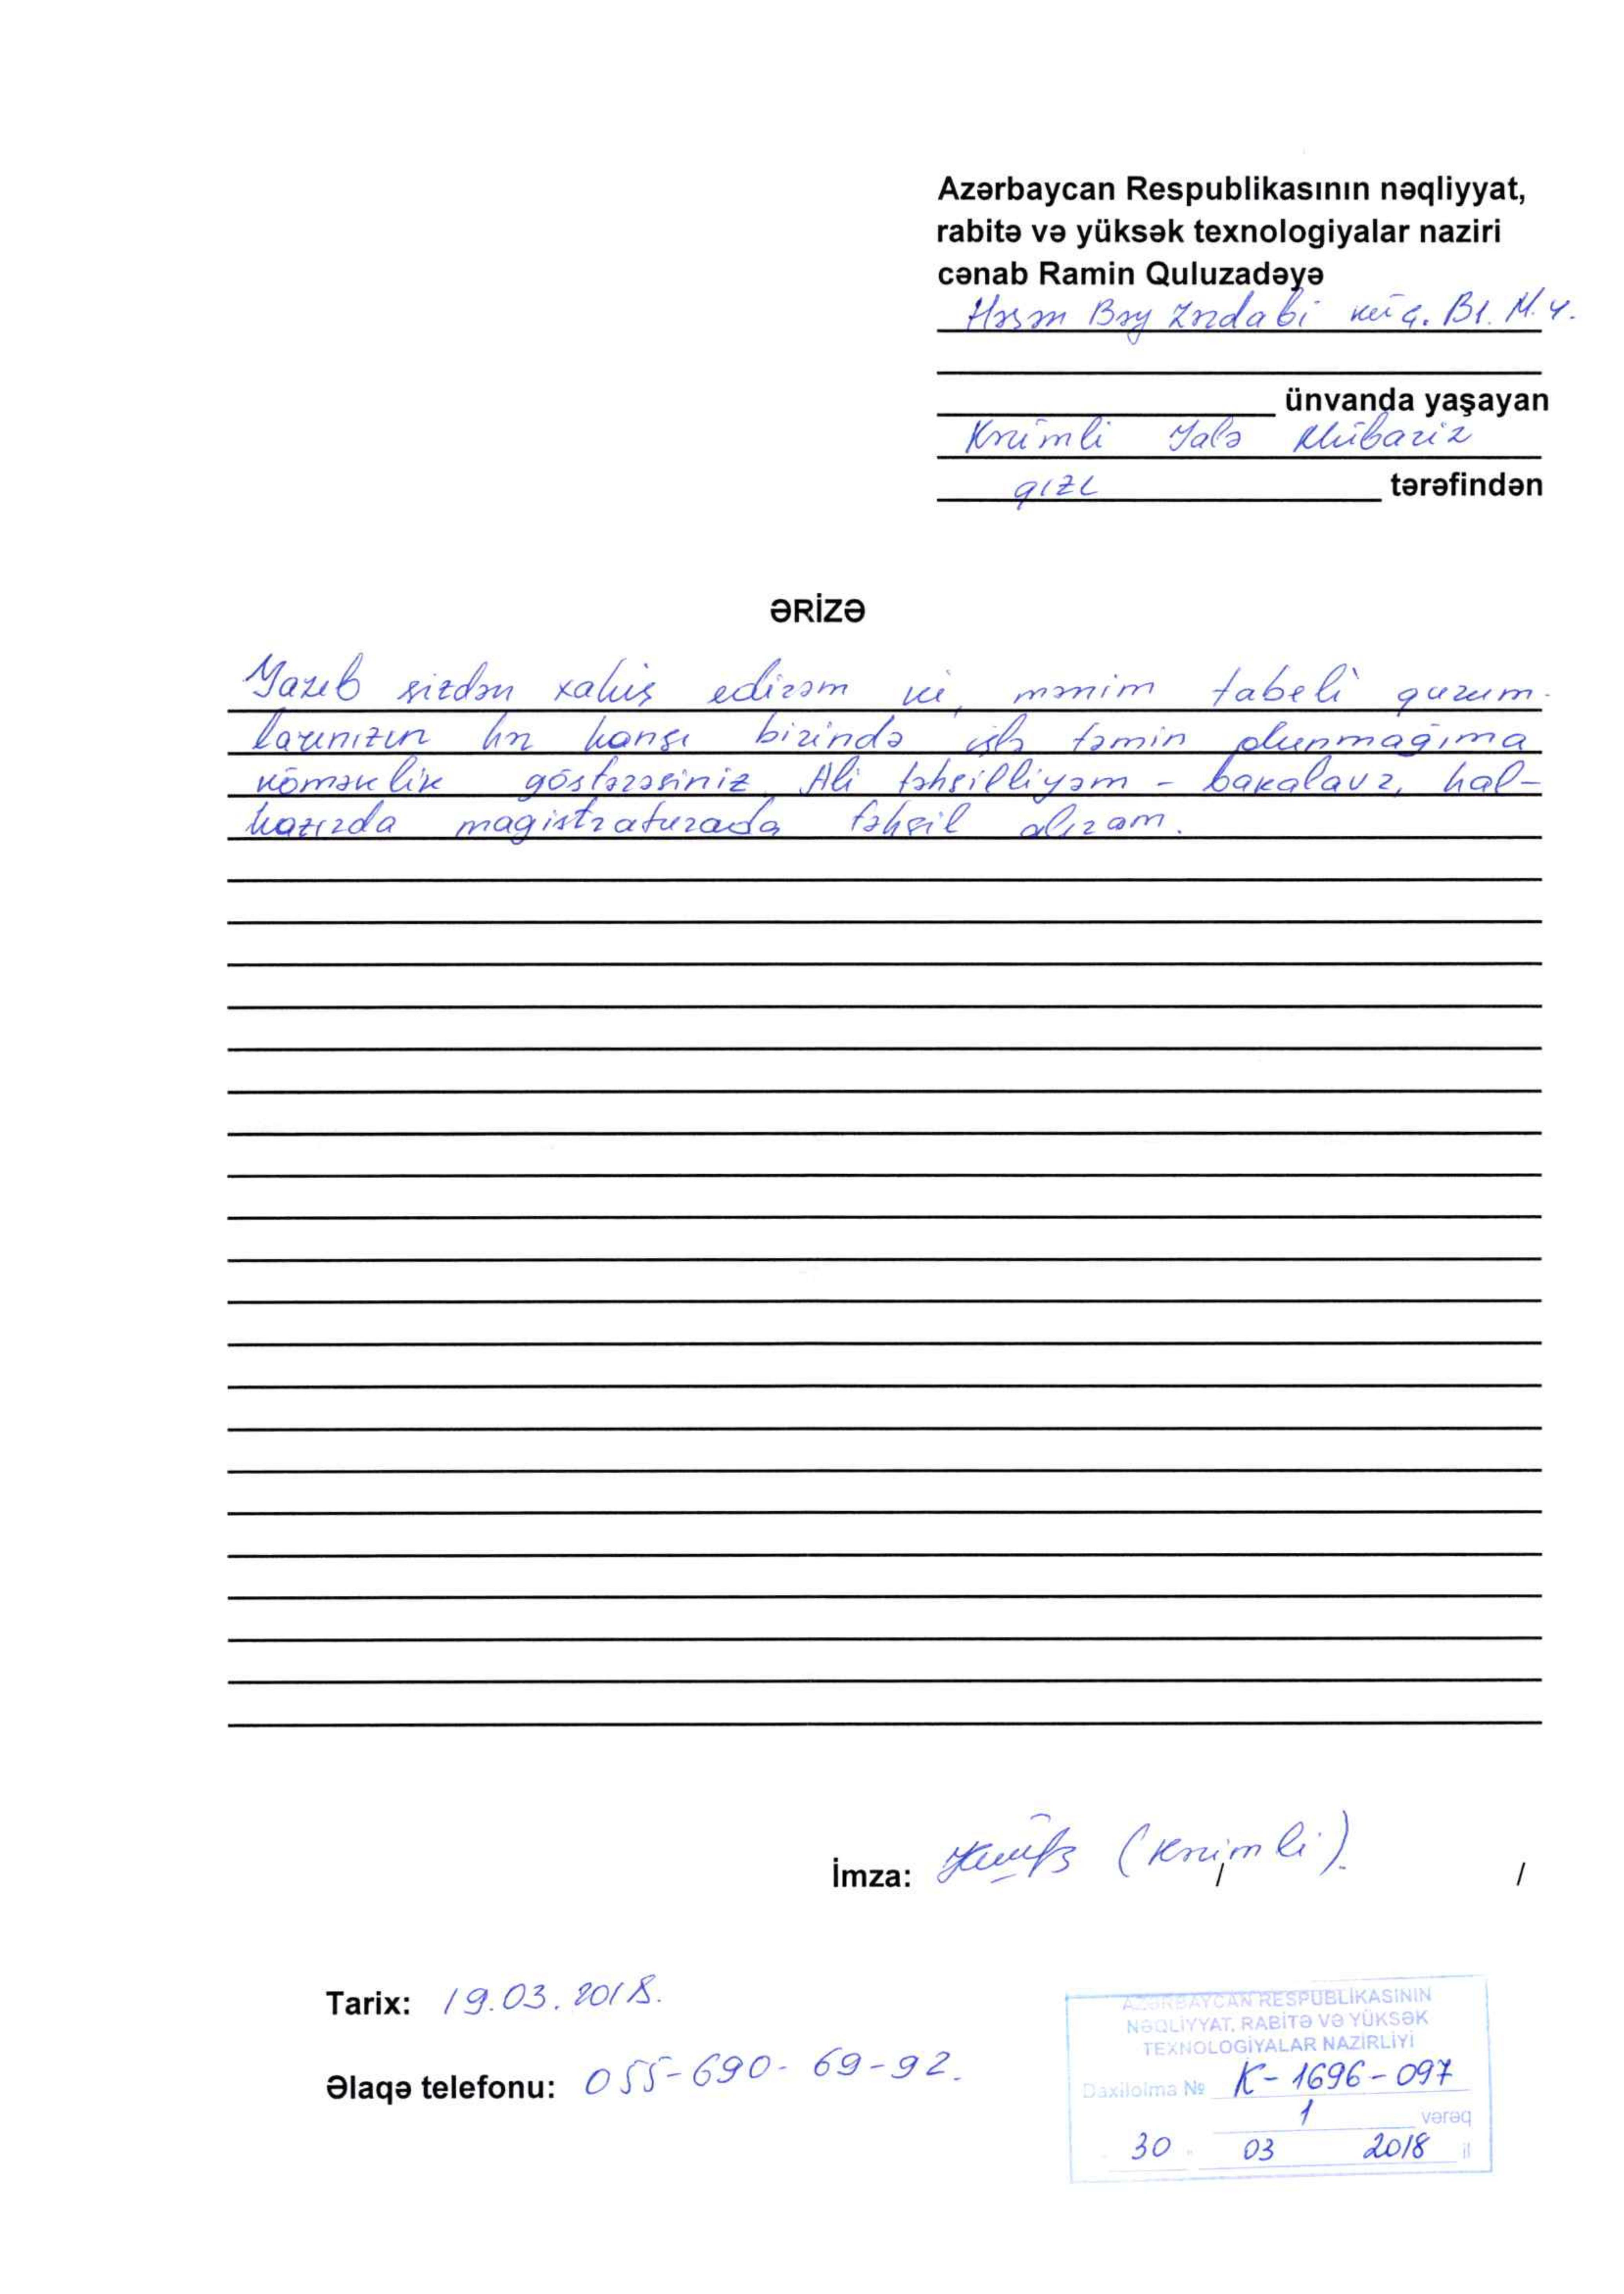 Azərbaycan Respublikasının nəqliyyat,
rabitə və yüksək texnologiyalar naziri
cənab Ramin Quluzadəyə
Həsən Bəy Zərdabi küç. B1. M.4.
ünvanda yaşayan
Kərimli Jalə Mübariz
qızı tərəfindən
ƏRİZƏ
Yazıb sizdən xahiş edirəm ki, mənim tabeli qurum-
larınızın hər hansı birində işlə təmin olunmağıma
köməklik göstərəsiniz. Ali təhsilliyəm - bakalavr, hal-
hazırda magistraturada təhsil alıram.
İmza: (Kərimli). / /
Tarix: 19.03.2018.
Əlaqə telefonu: 055-690-69-92.
AZƏRBAYCAN RESPUBLİKASININ
NƏQLİYYAT, RABİTƏ VƏ YÜKSƏK
TEXNOLOGİYALAR NAZİRLİYİ
Daxilolma № K-1696-097
1 vərəq
30 03 2018 il